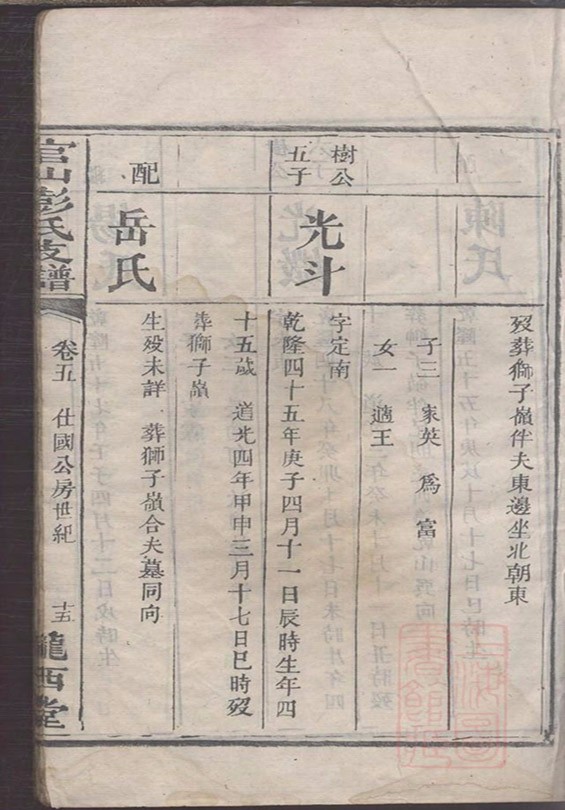 歿葬獅子嶺伴夫東邊坐北朝東
子三 家英 爲富
女一 適王
樹公五子
光斗
字定南
乾隆四十五年庚子四月十一日辰時生年四
十五歲 道光四年甲申三月十七日巳時歿
葬獅子嶺
配
岳氏
生歿未詳 葬獅子嶺合夫墓同向
官山彭氏支譜
卷五 仕國公房世紀
十五
隴西堂